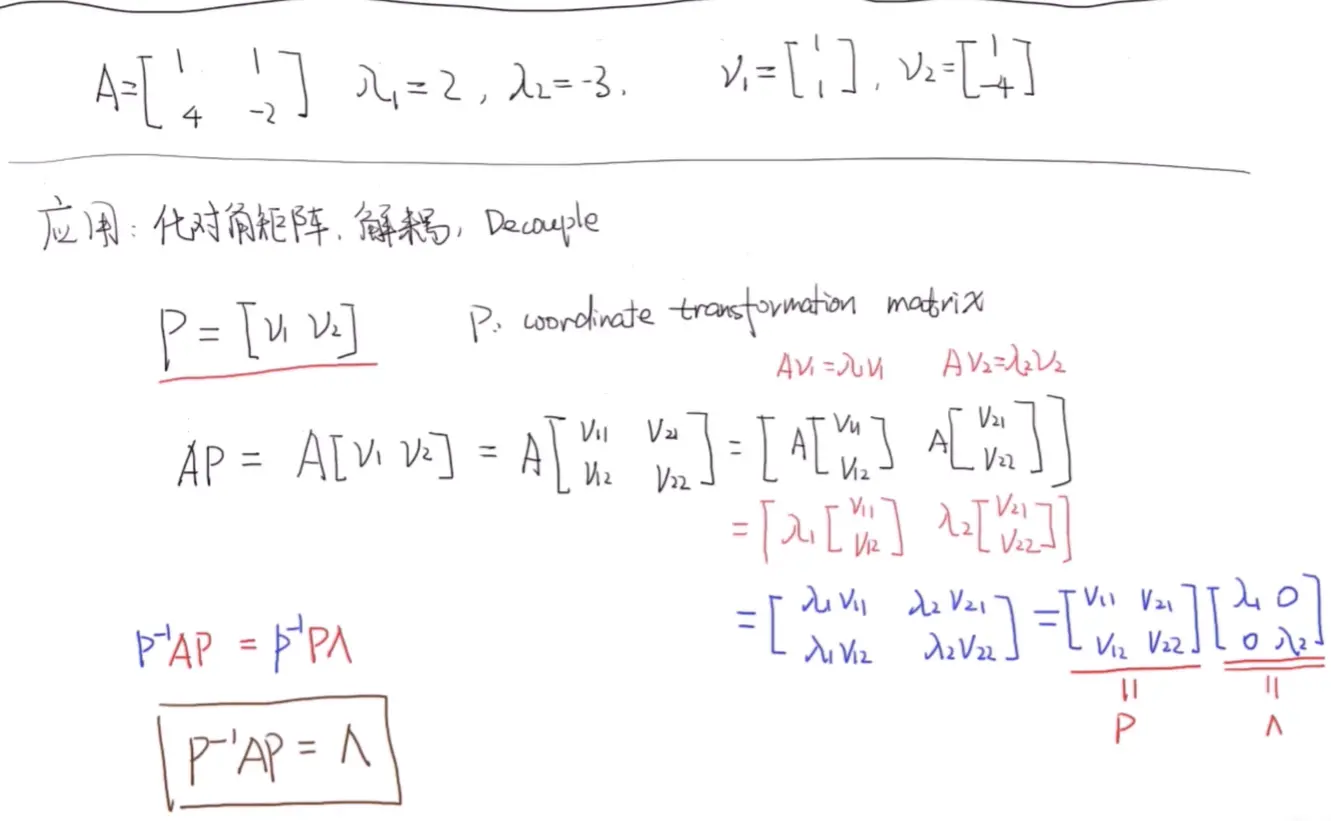 A=[1 1; 4 -2] λ₁=2, λ₂=-3. v₁=[1; 1], v₂=[1; -4]
应用: 化对角矩阵. 解耦, Decouple
P=[v₁ v₂] P: coordinate transformation matrix
Av₁=λ₁v₁ Av₂=λ₂v₂
AP = A[v₁ v₂] = A[v₁₁ v₂₁; v₁₂ v₂₂] = [A[v₁₁; v₁₂] A[v₂₁; v₂₂]]
=[λ₁[v₁₁; v₁₂] λ₂[v₂₁; v₂₂]]
=[λ₁v₁₁ λ₂v₂₁; λ₁v₁₂ λ₂v₂₂] =[v₁₁ v₂₁; v₁₂ v₂₂][λ₁ 0; 0 λ₂]
P⁻¹AP = P⁻¹PΛ
= P = Λ
P⁻¹AP = Λ